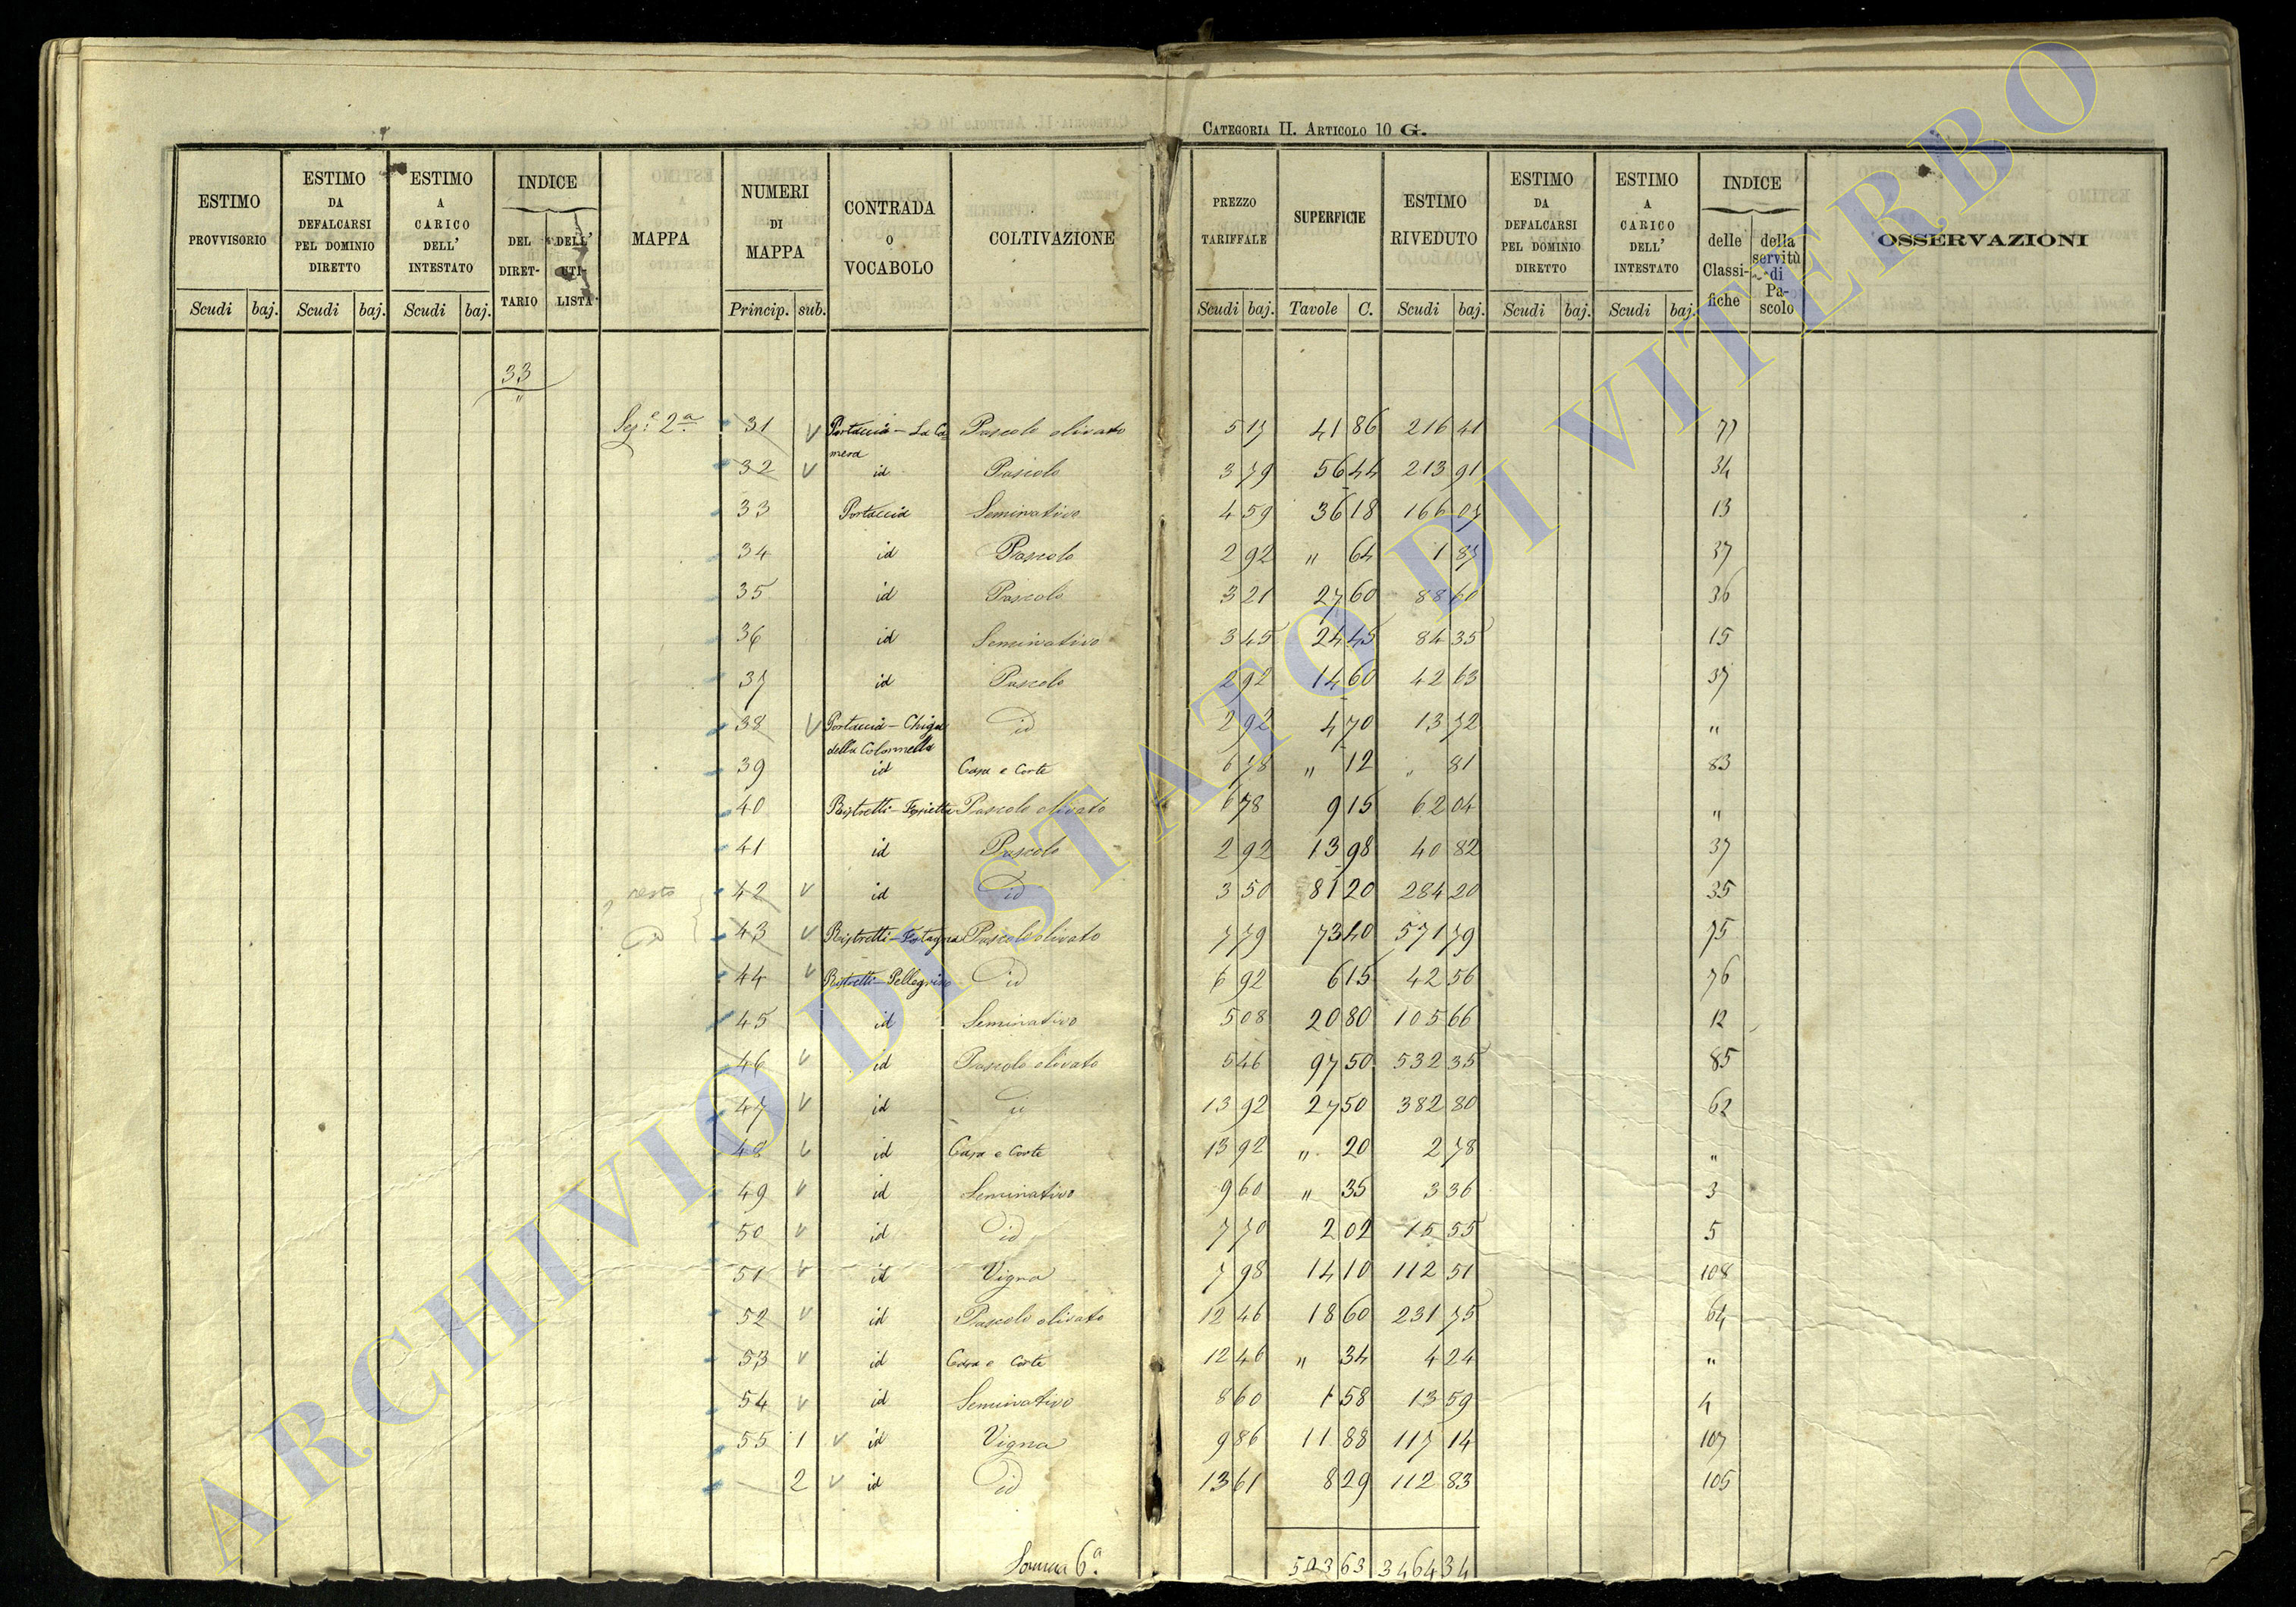 CATEGORIA II. ARTICOLO 10 G.
ESTIMO PROVVISORIO | ESTIMO DA DEFALCARSI PEL DOMINIO DIRETTO | ESTIMO A CARICO DELL' INTESTATO | INDICE DEL DIRET-TARIO | DELL' UTI-LISTA | MAPPA | NUMERI DI MAPPA | CONTRADA O VOCABOLO | COLTIVAZIONE | PREZZO TARIFFALE | SUPERFICIE | ESTIMO RIVEDUTO | ESTIMO DA DEFALCARSI PEL DOMINIO DIRETTO | ESTIMO A CARICO DELL' INTESTATO | INDICE delle Classi-fiche | della servitù di Pa-scolo | OSSERVAZIONI
Scudi baj. Scudi baj. Scudi baj. Princip. sub. Scudi baj. Tavole C. Scudi baj. Scudi baj. Scudi baj.
33
"
Sez.e 2a 31 V Portaccia - La Ca Pascolo olivato 5 17 41 86 216 41 77
mera
32 V id Pascolo 3 79 56 44 213 91 34
33 Portaccia Seminativo 4 59 36 18 166 07 13
34 id Pascolo 2 92 " 64 1 87 37
35 id Pascolo 3 21 27 60 88 60 36
36 id Seminativo 3 45 24 45 84 35 15
37 id Pascolo 2 92 14 60 42 63 37
38 V Portaccia - Chiga id 2 92 4 70 13 72 "
della Colonnella
39 id Casa e Corte 6 78 " 12 " 81 83
40 Ristretti - Pascolo olivato 6 78 9 15 62 04 "
41 id Pascolo 2 92 13 98 40 82 37
resto 42 V id id 3 50 81 20 284 20 35
id 43 V Ristretti - Pascolo olivato 7 79 73 40 571 79 75
44 V Ristretti - Pellegrino id 6 92 6 15 42 56 76
45 id Seminativo 5 08 20 80 105 66 12
46 V id Pascolo olivato 5 46 97 50 532 35 85
47 V id id 13 92 27 50 382 80 62
48 V id Casa e Corte 13 92 " 20 2 78 "
49 V id Seminativo 9 60 " 35 3 36 3
50 V id id 7 70 2 02 15 55 5
51 V id Vigna 7 98 14 10 112 51 108
52 V id Pascolo olivato 12 46 18 60 231 75 64
53 V id Casa e Corte 12 46 " 34 4 24 "
54 V id Seminativo 8 60 1 58 13 59 4
55 1 V id Vigna 9 86 11 88 117 14 107
2 V id id 13 61 8 29 112 83 105
Somma 6a 593 63 3464 34
ARCHIVIO DI STATO DI VITERBO